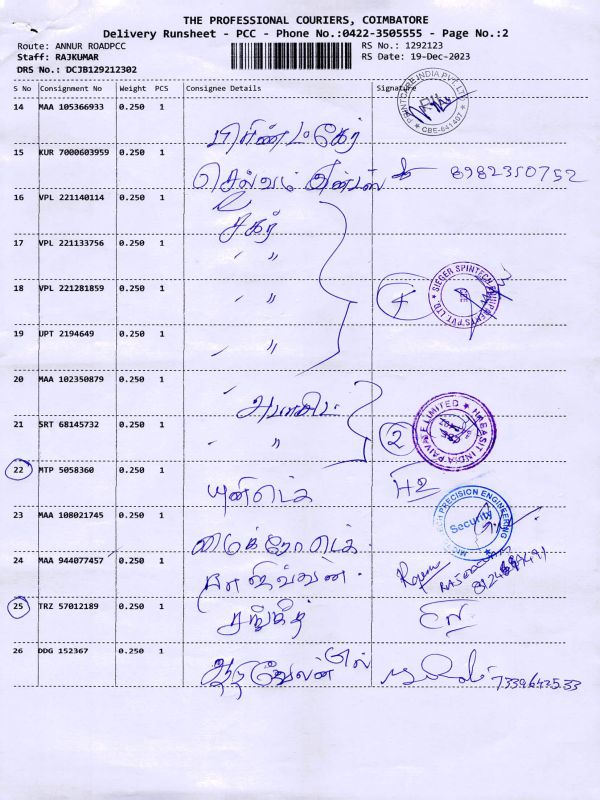 THE PROFESSIONAL COURIERS, COIMBATORE
Delivery Runsheet - PCC - Phone No.:0422-3505555 - Page No.:2
Route: ANNUR ROADPCC RS No.: 1292123
Staff: RAJKUMAR RS Date: 19-Dec-2023
DRS No.: DCJB129212302
S No Consignment No Weight PCS Consignee Details Signature
14 MAA 105366933 0.250 1
PRINTCARE INDIA PVT. LTD. CBE-641497
பிரிண்ட் கேர்
15 KUR 7000603959 0.250 1
செல்வம் 8982350752
16 VPL 221140114 0.250 1
சகர்
17 VPL 221133756 0.250 1
" "
18 VPL 221281859 0.250 1
" 4 SIEGER SPINTECH EQUIPMENTS PVT LTD.
19 UPT 2194649 0.250 1
" "
20 MAA 102350879 0.250 1
21 SRT 68145732 0.250 1
" " 2 HABASIT INDIA PRIVATE LIMITED CBE
22 MTP 5058360 0.250 1
யுனிடெக்
23 MAA 108021745 0.250 1
PRECISION ENGINEERING Security
மைக்ரோடெக்
24 MAA 944077457 0.250 1
25 TRZ 57012189 0.250 1
26 DDG 152367 0.250 1
7339643533